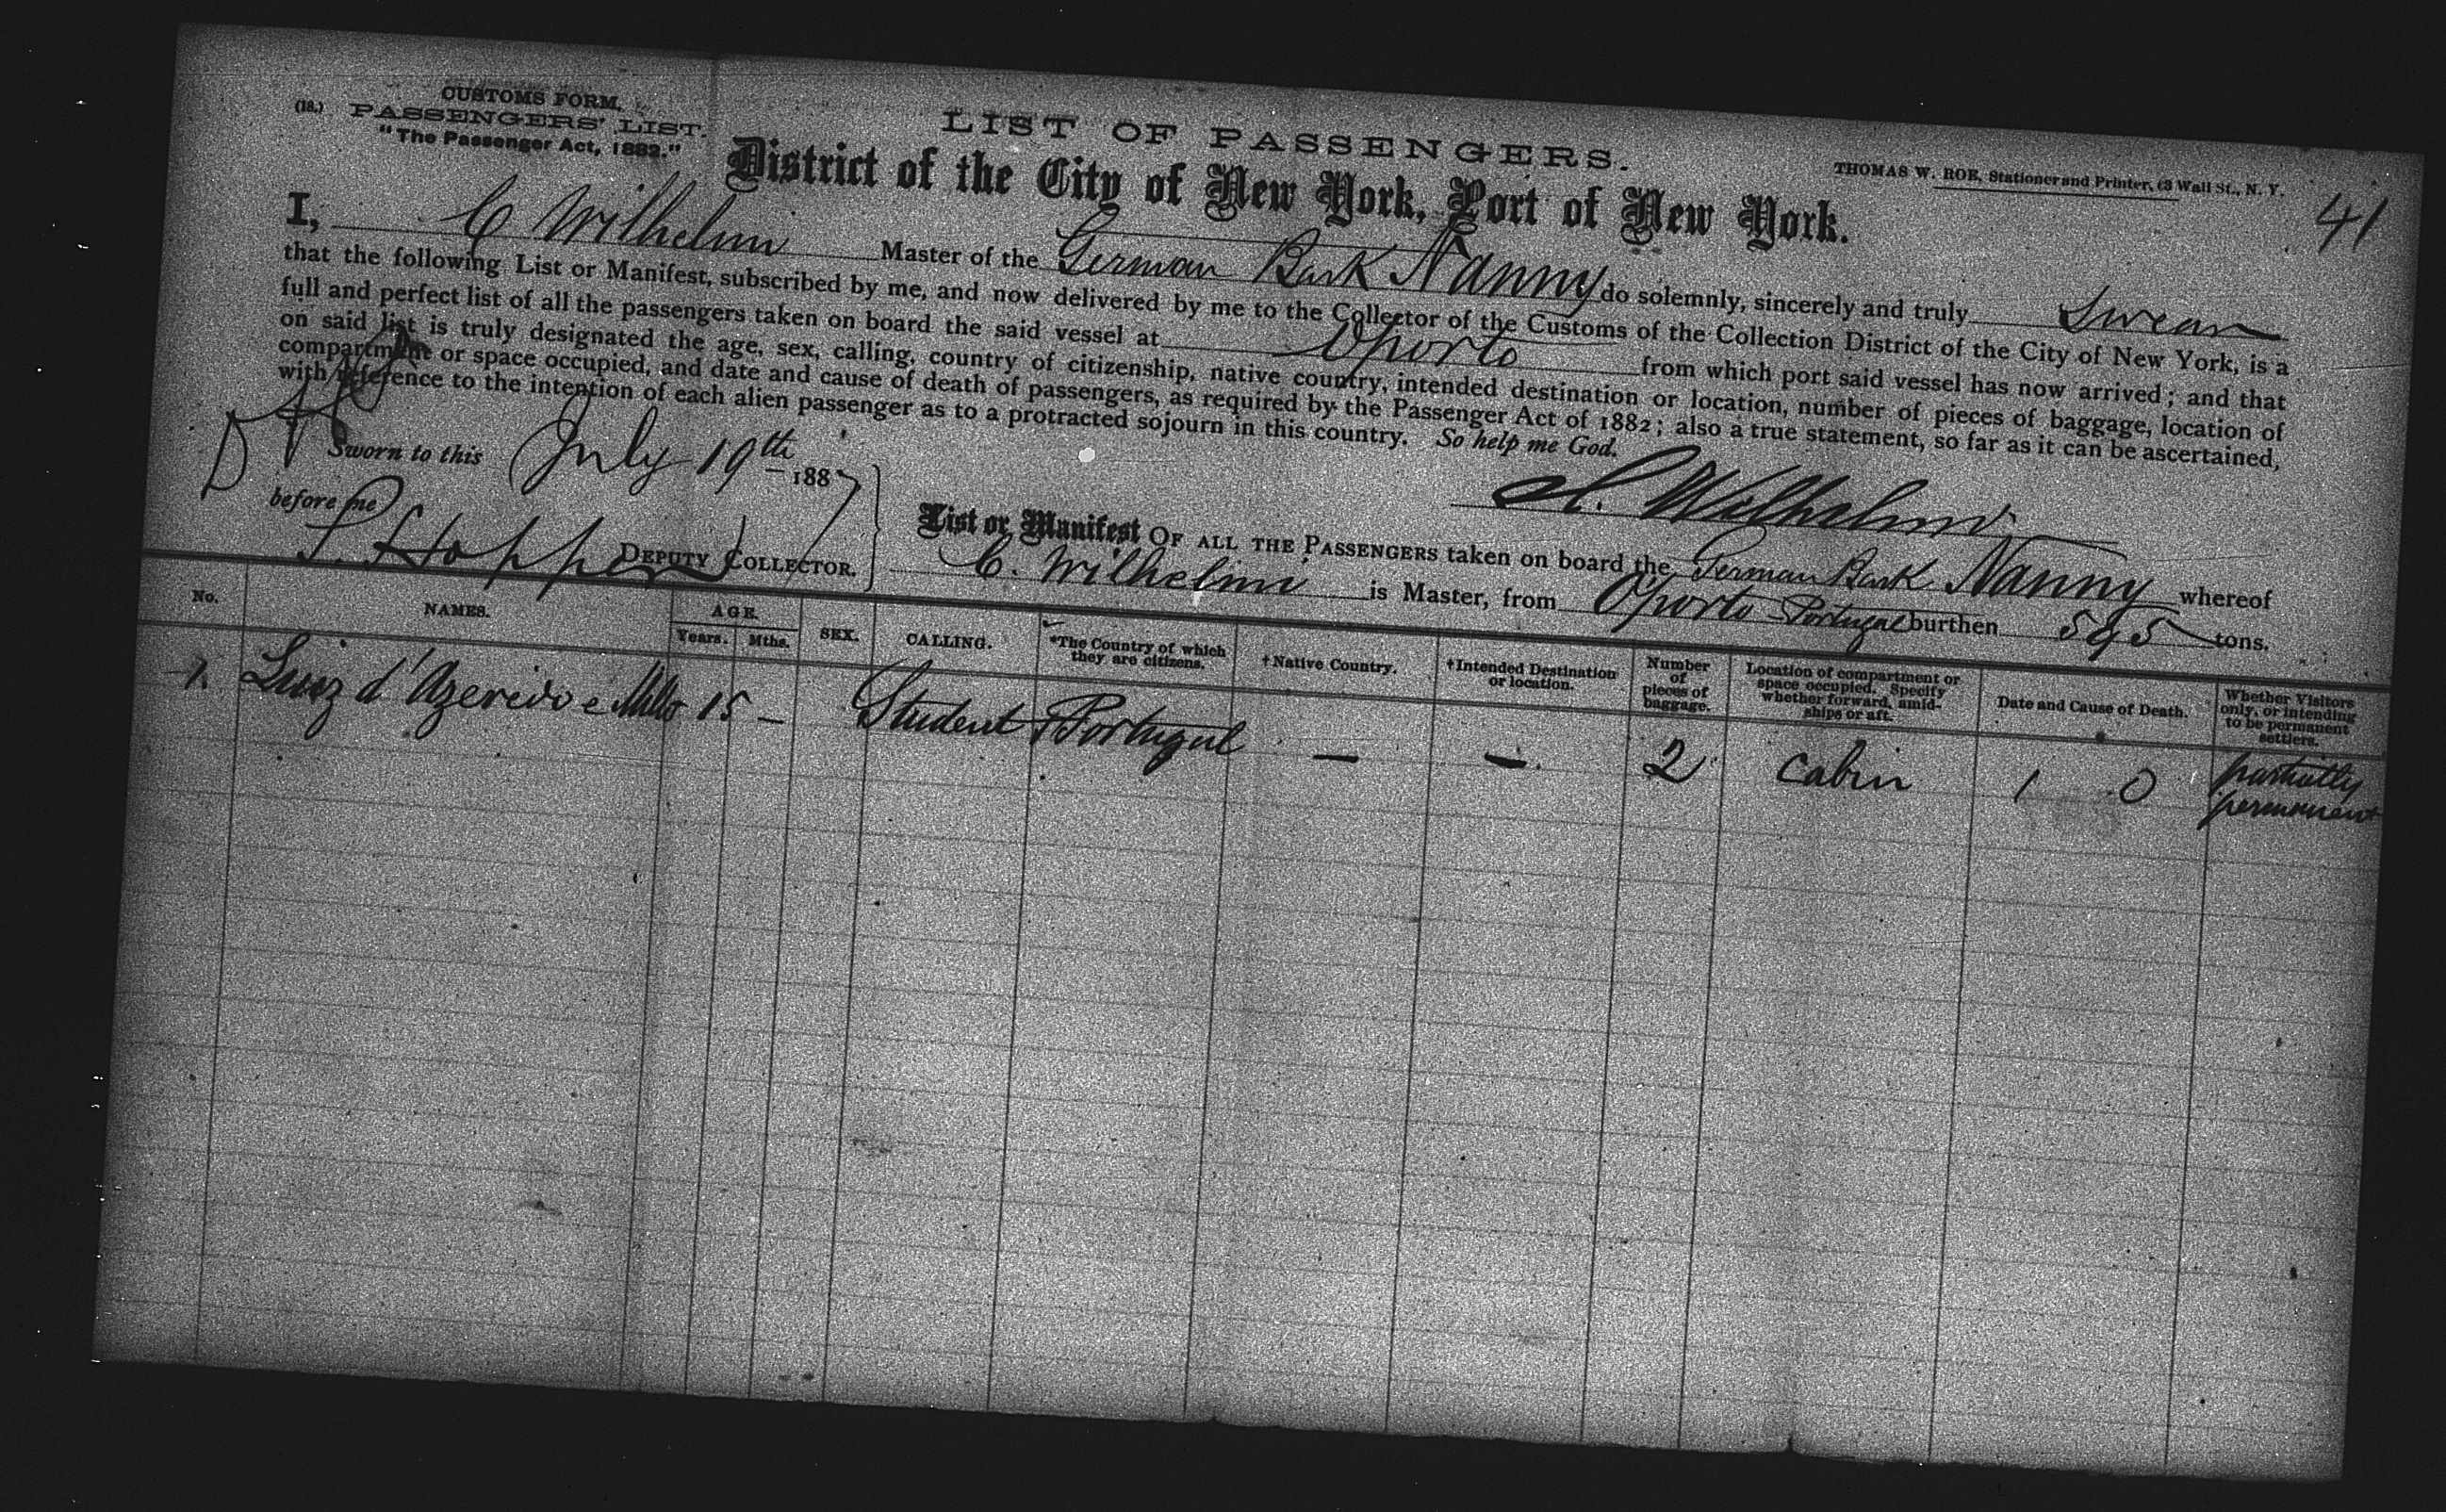 CUSTOMS FORM.
(18.) PASSENGERS' LIST.
"The Passenger Act, 1882."
LIST OF PASSENGERS.
District of the City of New York, Port of New York.
THOMAS W. ROE, Stationer and Printer, 63 Wall St., N. Y.
41
I, C Wilhelmi Master of the German Bark Nanny do solemnly, sincerely and truly Swear
that the following List or Manifest, subscribed by me, and now delivered by me to the Collector of the Customs of the Collection District of the City of New York, is a
full and perfect list of all the passengers taken on board the said vessel at Oporto from which port said vessel has now arrived; and that
on said list is truly designated the age, sex, calling, country of citizenship, native country, intended destination or location, number of pieces of baggage, location of
compartment or space occupied, and date and cause of death of passengers, as required by the Passenger Act of 1882; also a true statement, so far as it can be ascertained,
with reference to the intention of each alien passenger as to a protracted sojourn in this country. So help me God.
Sworn to this July 19th 1887
C. Wilhelmi
before me
Hopper DEPUTY COLLECTOR.
List or Manifest OF ALL THE PASSENGERS taken on board the German Bark Nanny whereof
C. Wilhelmi is Master, from Oporto Portugal burthen 595 tons.
No. NAMES. AGE. Years. Mths. SEX. CALLING. *The Country of which they are citizens. †Native Country. †Intended Destination or location. Number of pieces of baggage. Location of compartment or space occupied. Specify whether forward, amidships or aft. Date and Cause of Death. Whether Visitors only, or intending to be permanent settlers.
1. Luiz d'Azevedo e Mello 15 — Student Portugal — — 2 Cabin 1 0 partially permanent